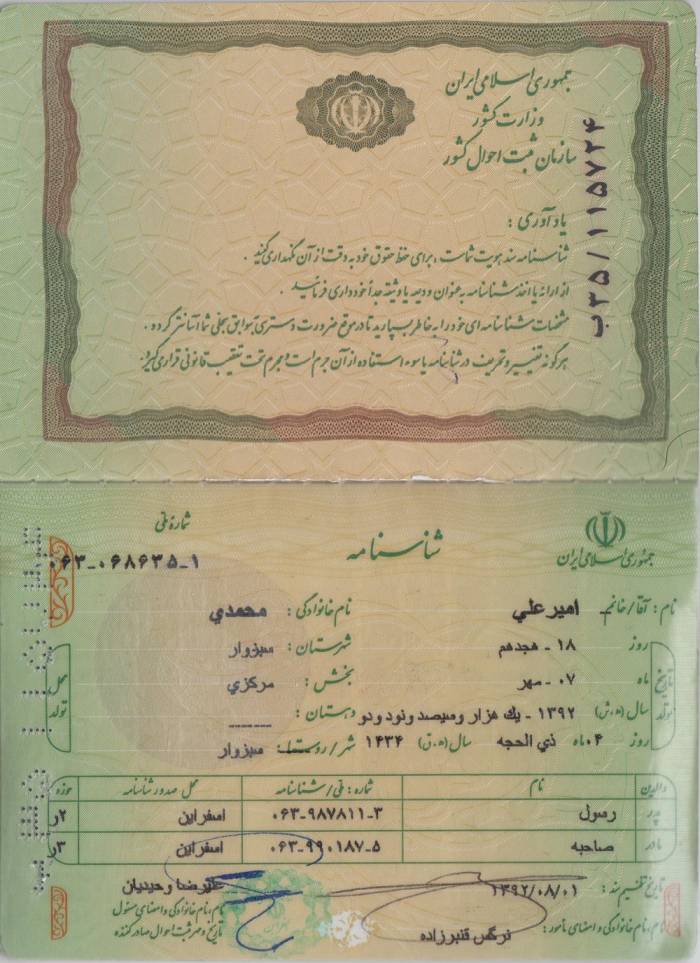 جمهوری اسلامی ایران
وزارت کشور
سازمان ثبت احوال کشور
ب۳۵/۱۱۵۷۲۴
یادآوری :
شناسنامه سند هویت شماست ، برای حفظ حقوق خود به دقت از آن نگهداری کنید .
از ارائه یا اخذ شناسنامه به عنوان ودیعه یا وثیقه جداً خودداری فرمائید .
مشخصات شناسنامه ای خود را به خاطر بسپارید تا در موقع ضرورت دسترسی به سوابق سجلی شما آسانتر گردد .
هرگونه تغییر و تحریف در شناسنامه یا سوء استفاده از آن جرم است و مجرم تحت تعقیب قانونی قرار می گیرد .
جمهوری اسلامی ایران
شناسنامه
شماره ملی
۰۶۳-۰۶۸۶۳۵-۱
نام : آقا/خانم امیرعلي نام خانوادگی : محمدي
تاریخ تولد
روز ۱۸ - هجدهم شهرستان : سبزوار
ماه ۰۷ - مهر بخش : مرکزي
سال (ه.ش) ۱۳۹۲ - يك هزار و سيصد و نود و دو دهستان : ------
روز ۰۴ ماه ذي الحجه سال (ه.ق) ۱۴۳۴ شهر/روستا : سبزوار
محل تولد
والدین نام شماره : ملی/شناسنامه محل صدور شناسنامه حوزه
پدر رسول ۰۶۳-۹۸۷۸۱۱-۳ اسفراين ۲ر
مادر صاحبه ۰۶۳-۹۹۰۱۸۷-۵ اسفراين ۳ر
تاریخ تنظیم سند : ۱۳۹۲/۰۸/۰۱ عليرضا وحيديان
نام ، نام خانوادگی و امضای مأمور : نرگس قنبرزاده
نام ، نام خانوادگی و امضای مسئول
تاریخ و مهر ثبت احوال صادر کننده